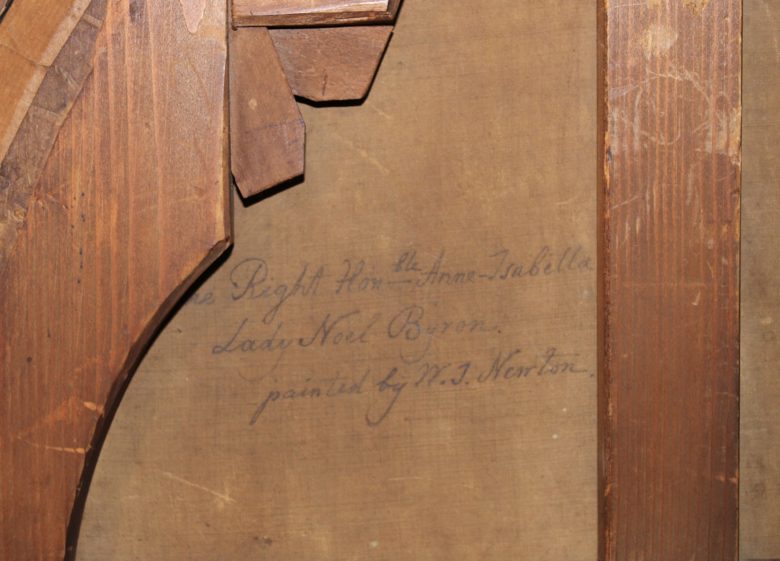 he Right Hon^ble Anne-Isabella
Lady Noel Byron.
painted by W. J. Newton.